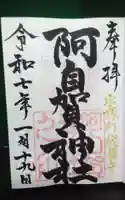 奉拝
阿自賀神社
令和七年 一月十九日